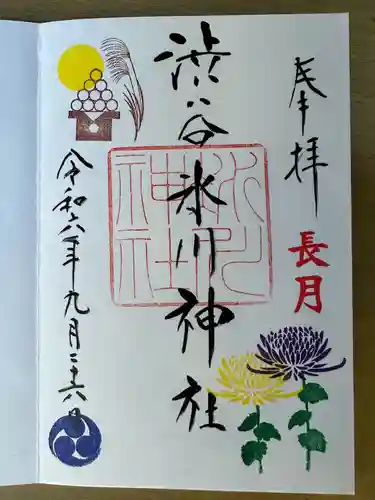 奉拝
長月
渋谷氷川神社
氷川
神社
令和六年九月二十六日